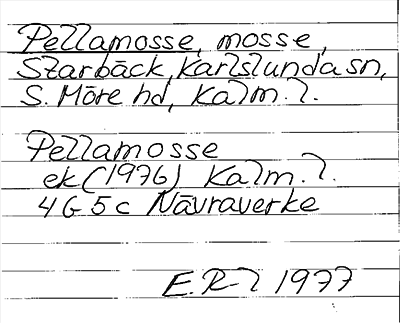 Pellamosse, mosse,
Starbäck, Karlslunda sn,
S. Möre hd, Kalm. l.
Pellamosse
ek (1976) Kalm. l.
4G5c Nävraverke
E.R-l 1977